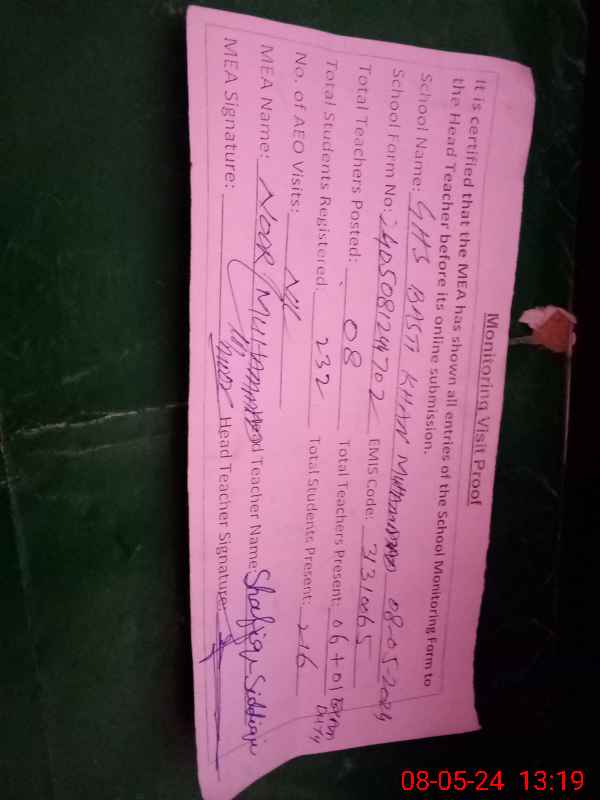 Monitoring Visit Proof
It is certified that the MEA has shown all entries of the School Monitoring Form to
the Head Teacher before its online submission.
School Name: GHS BASTI KHAN MUHAMMAD 08 05 2024
School Form No: 240508124702 EMIS Code: 3131065
Total Teachers Posted: 08 Total Teachers Present: 06+01 DUTY
Total Students Registered. 232 Total Students Present: 216
No. of AEO Visits: Nil
MEA Name: NOOR MUHAMMAD Head Teacher Name: Shafiq Siddiqui
MEA Signature: Head Teacher Signature:
08-05-24 13:19